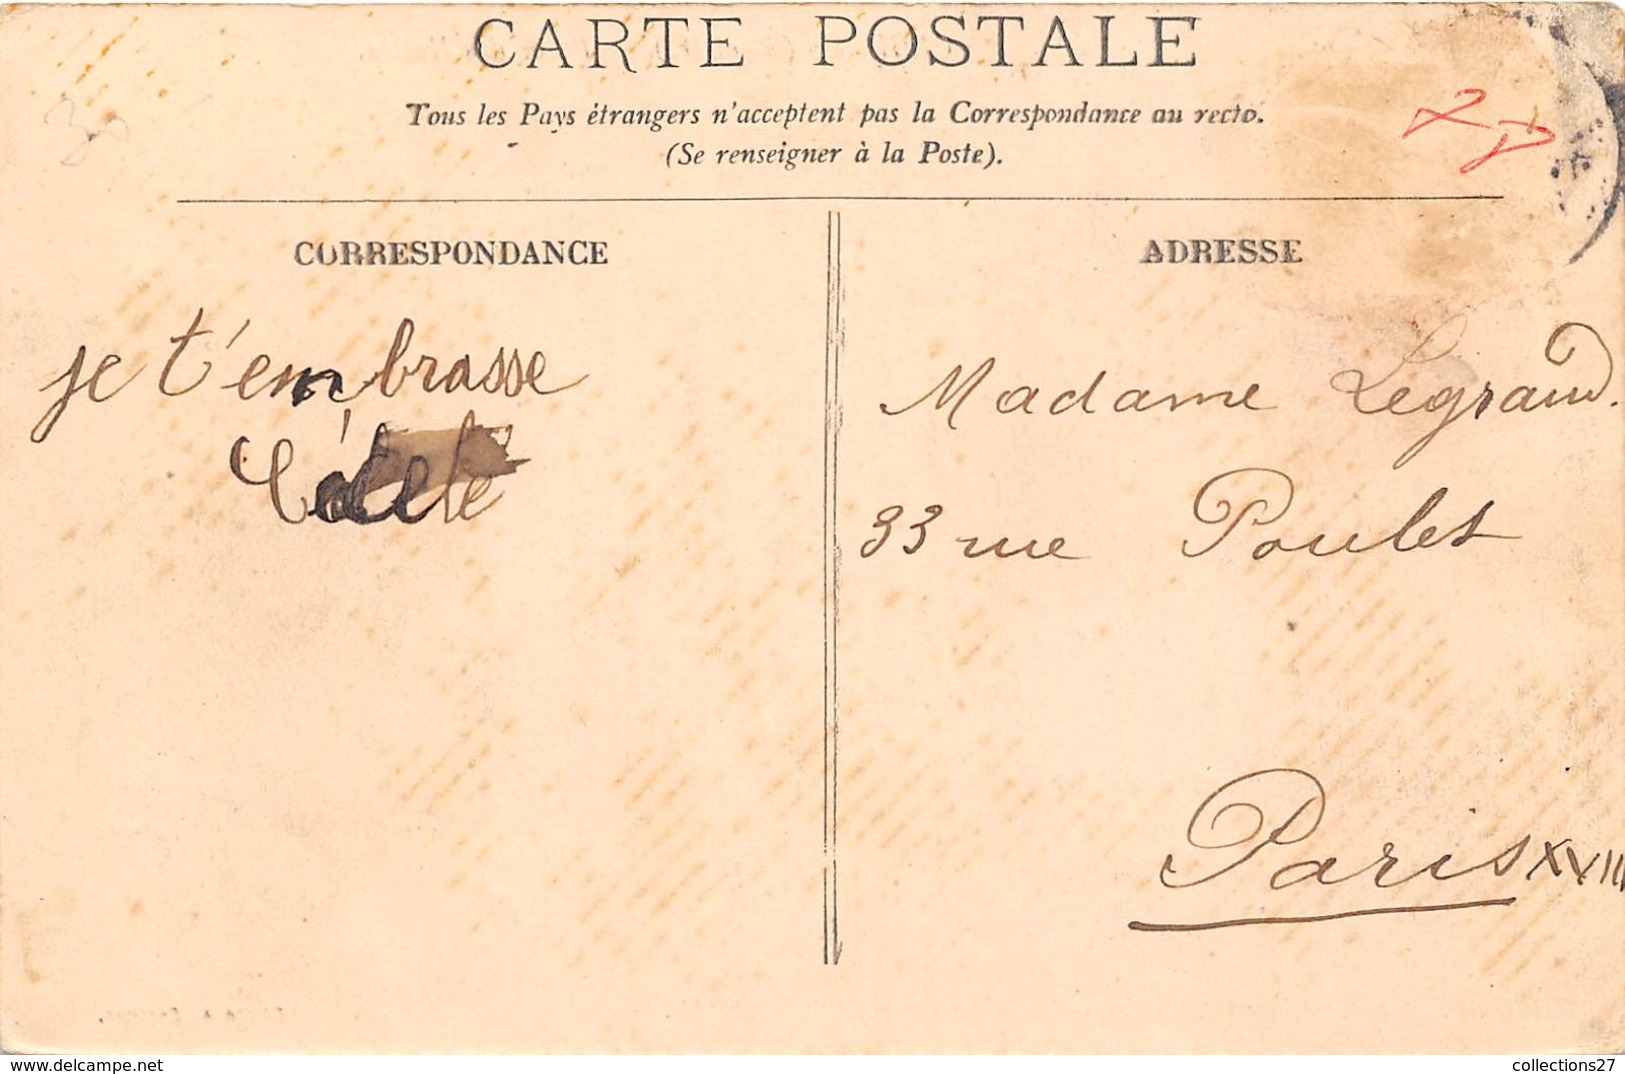 CARTE POSTALE
Tous les Pays étrangers n'acceptent pas la Correspondance au recto.
(Se renseigner à la Poste).
CORRESPONDANCE
ADRESSE
je t'embrasse
Madame Legrand.
33 rue Poulet
Paris XVIII
www.delcampe.net
collections27